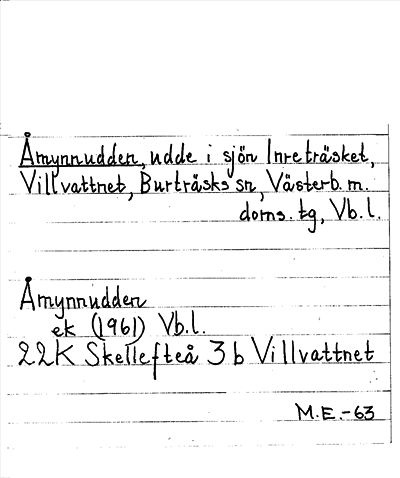 Åmynnudden, udde i sjön Inreträsket,
Villvattnet, Burträsks sn, Västerb. m.
doms. tg, Vb. l.
Åmynnudden
ek (1961) Vb. l.
22K Skellefteå 3 b Villvattnet
M.E.-63